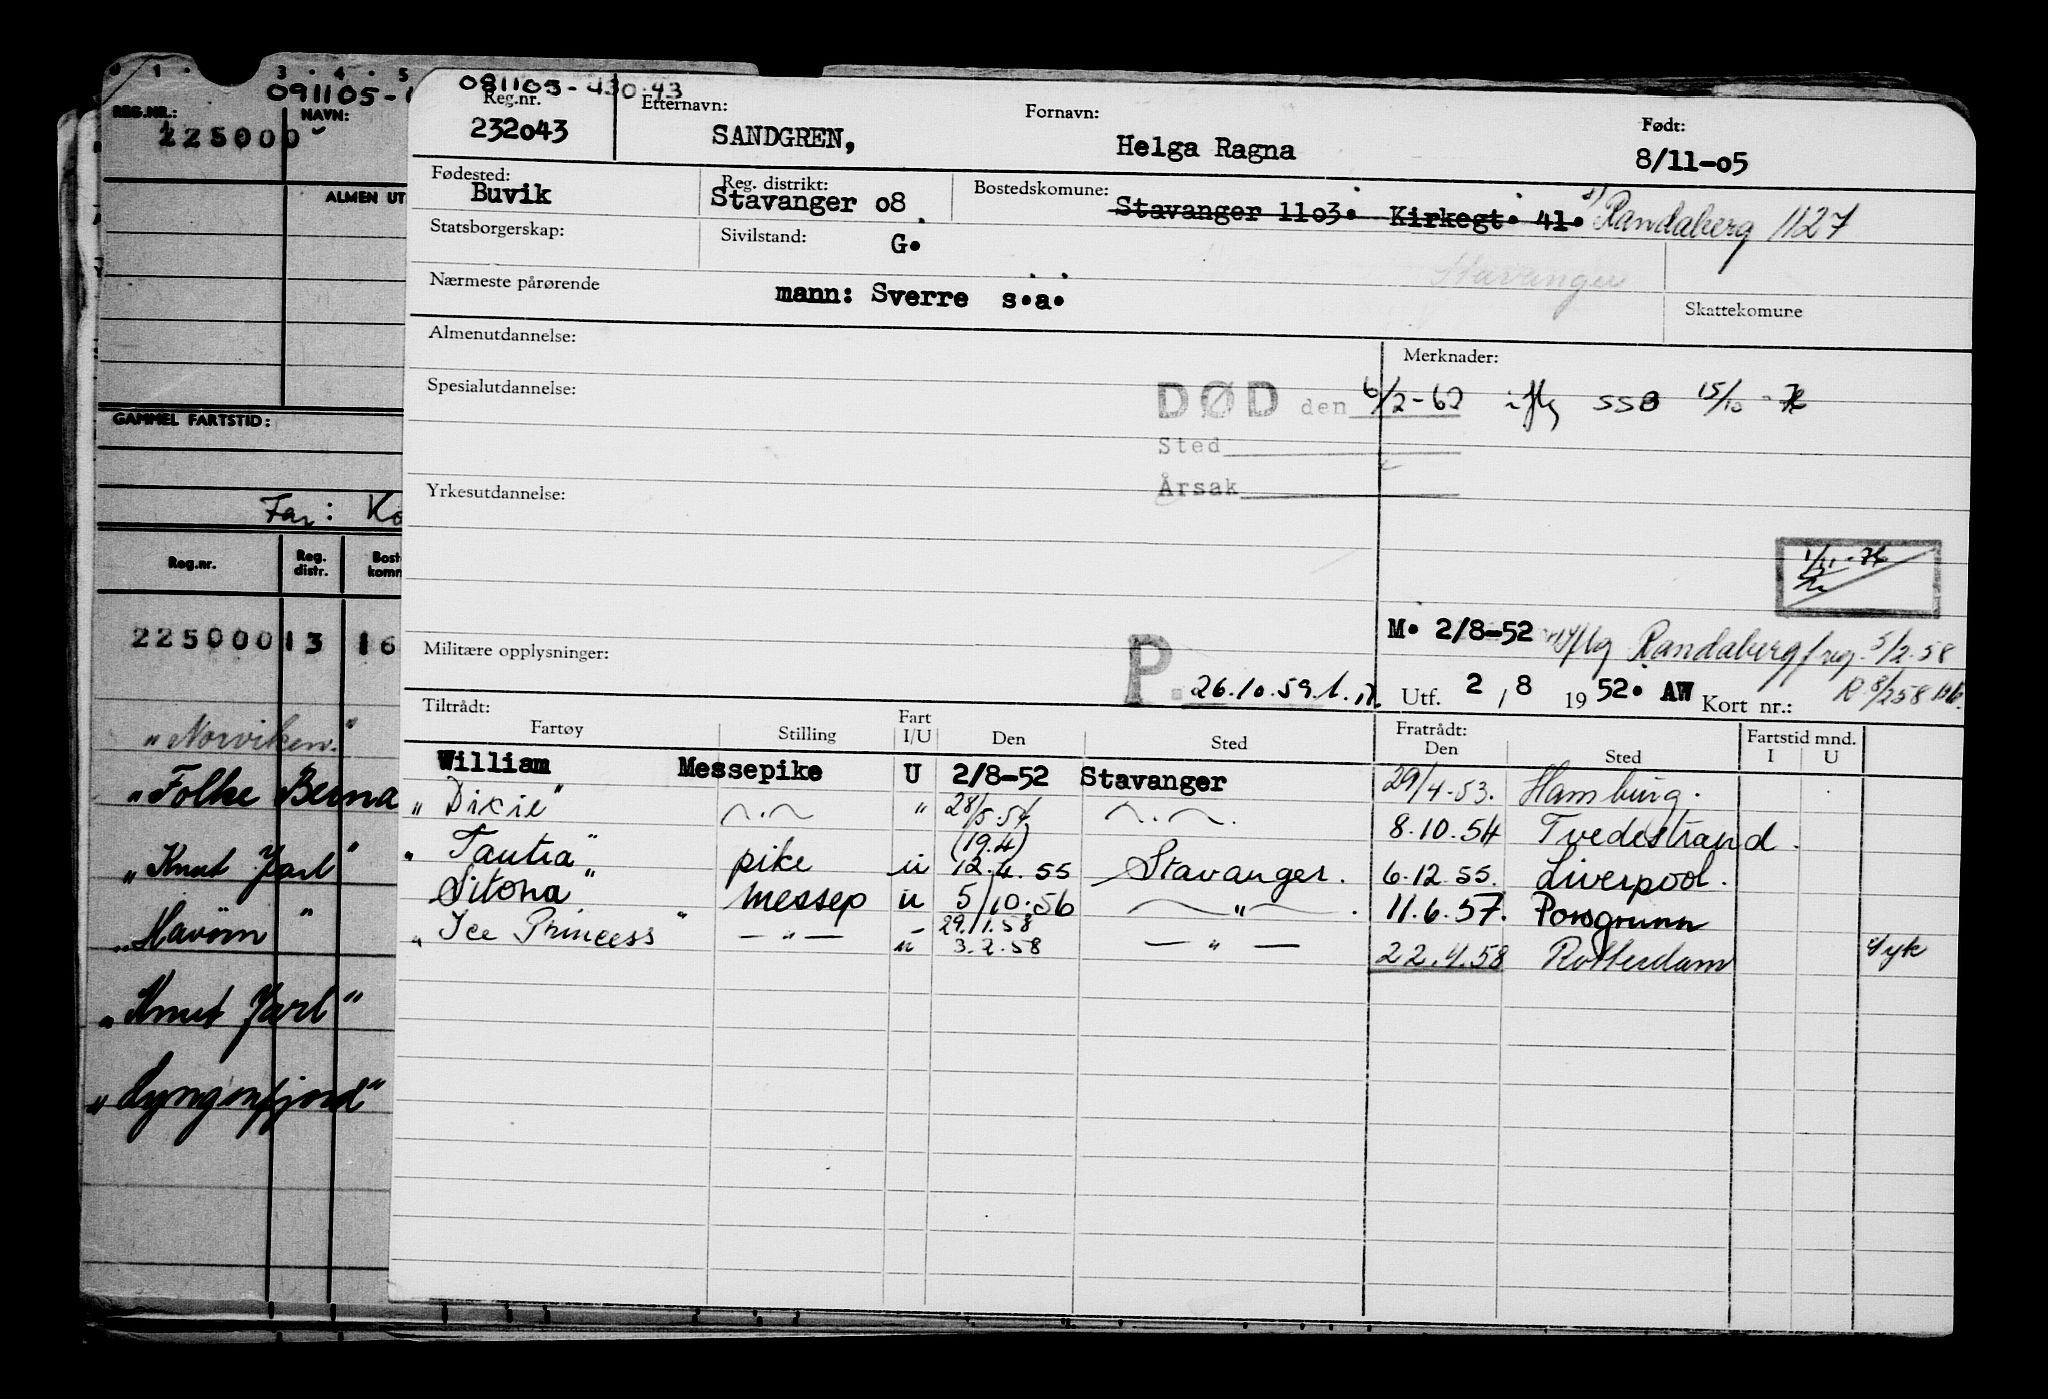 3 . 4 . 5
091105-
REG.NR.: NAVN:
225000
ALMEN UT
GAMMEL FARTSTID:
Far: Ko
Reg.nr. Reg. distr. Bost komm
225000 13 16
"Norviken"
"Folke Berna
"Knut Jarl"
"Havörn"
"Knut Jarl"
"Lyngenfjord"
081105-430.43
Reg.nr. Etternavn: Fornavn: Født:
232043 SANDGREN, Helga Ragna 8/11-05
Fødested: Reg. distrikt: Bostedskomune:
Buvik Stavanger 08 Stavanger 1103. Kirkegt. 41. Randaberg 1127
Statsborgerskap: Sivilstand: G.
Stavanger
Nærmeste pårørende mann: Sverre s.a. Skattekomune
Almenutdannelse: Merknader:
Spesialutdannelse: DØD den 6/2-62 iflg SSB 15/10-
Sted
Årsak
Yrkesutdannelse:
1/11-76
M. 2/8-52 iflg Randaberg f.reg. 5/2.58
Militære opplysninger: P. 26.10.59. Utf. 2 / 8 1952. AW Kort nr.: R. 8/2 58
Tiltrådt: Fratrådt: Fartstid mnd.
Fartøy Stilling Fart I/U Den Sted Den Sted I U
William Messepike U 2/8-52 Stavanger 29/4-53. Hamburg.
"Dixie" —"— " 28/5.54 —"—. 8.10.54 Tvedestrand.
"Tautra" pike u (19.4) 12.4.55 Stavanger. 6.12.55. Liverpool.
Sitona" messep u 5/10.56 —"—. 11.6.57. Porsgrunn
"Ice Princess" —"— 29.1.58
u 3.2.58 —"— 22.4.58 Rotterdam syk